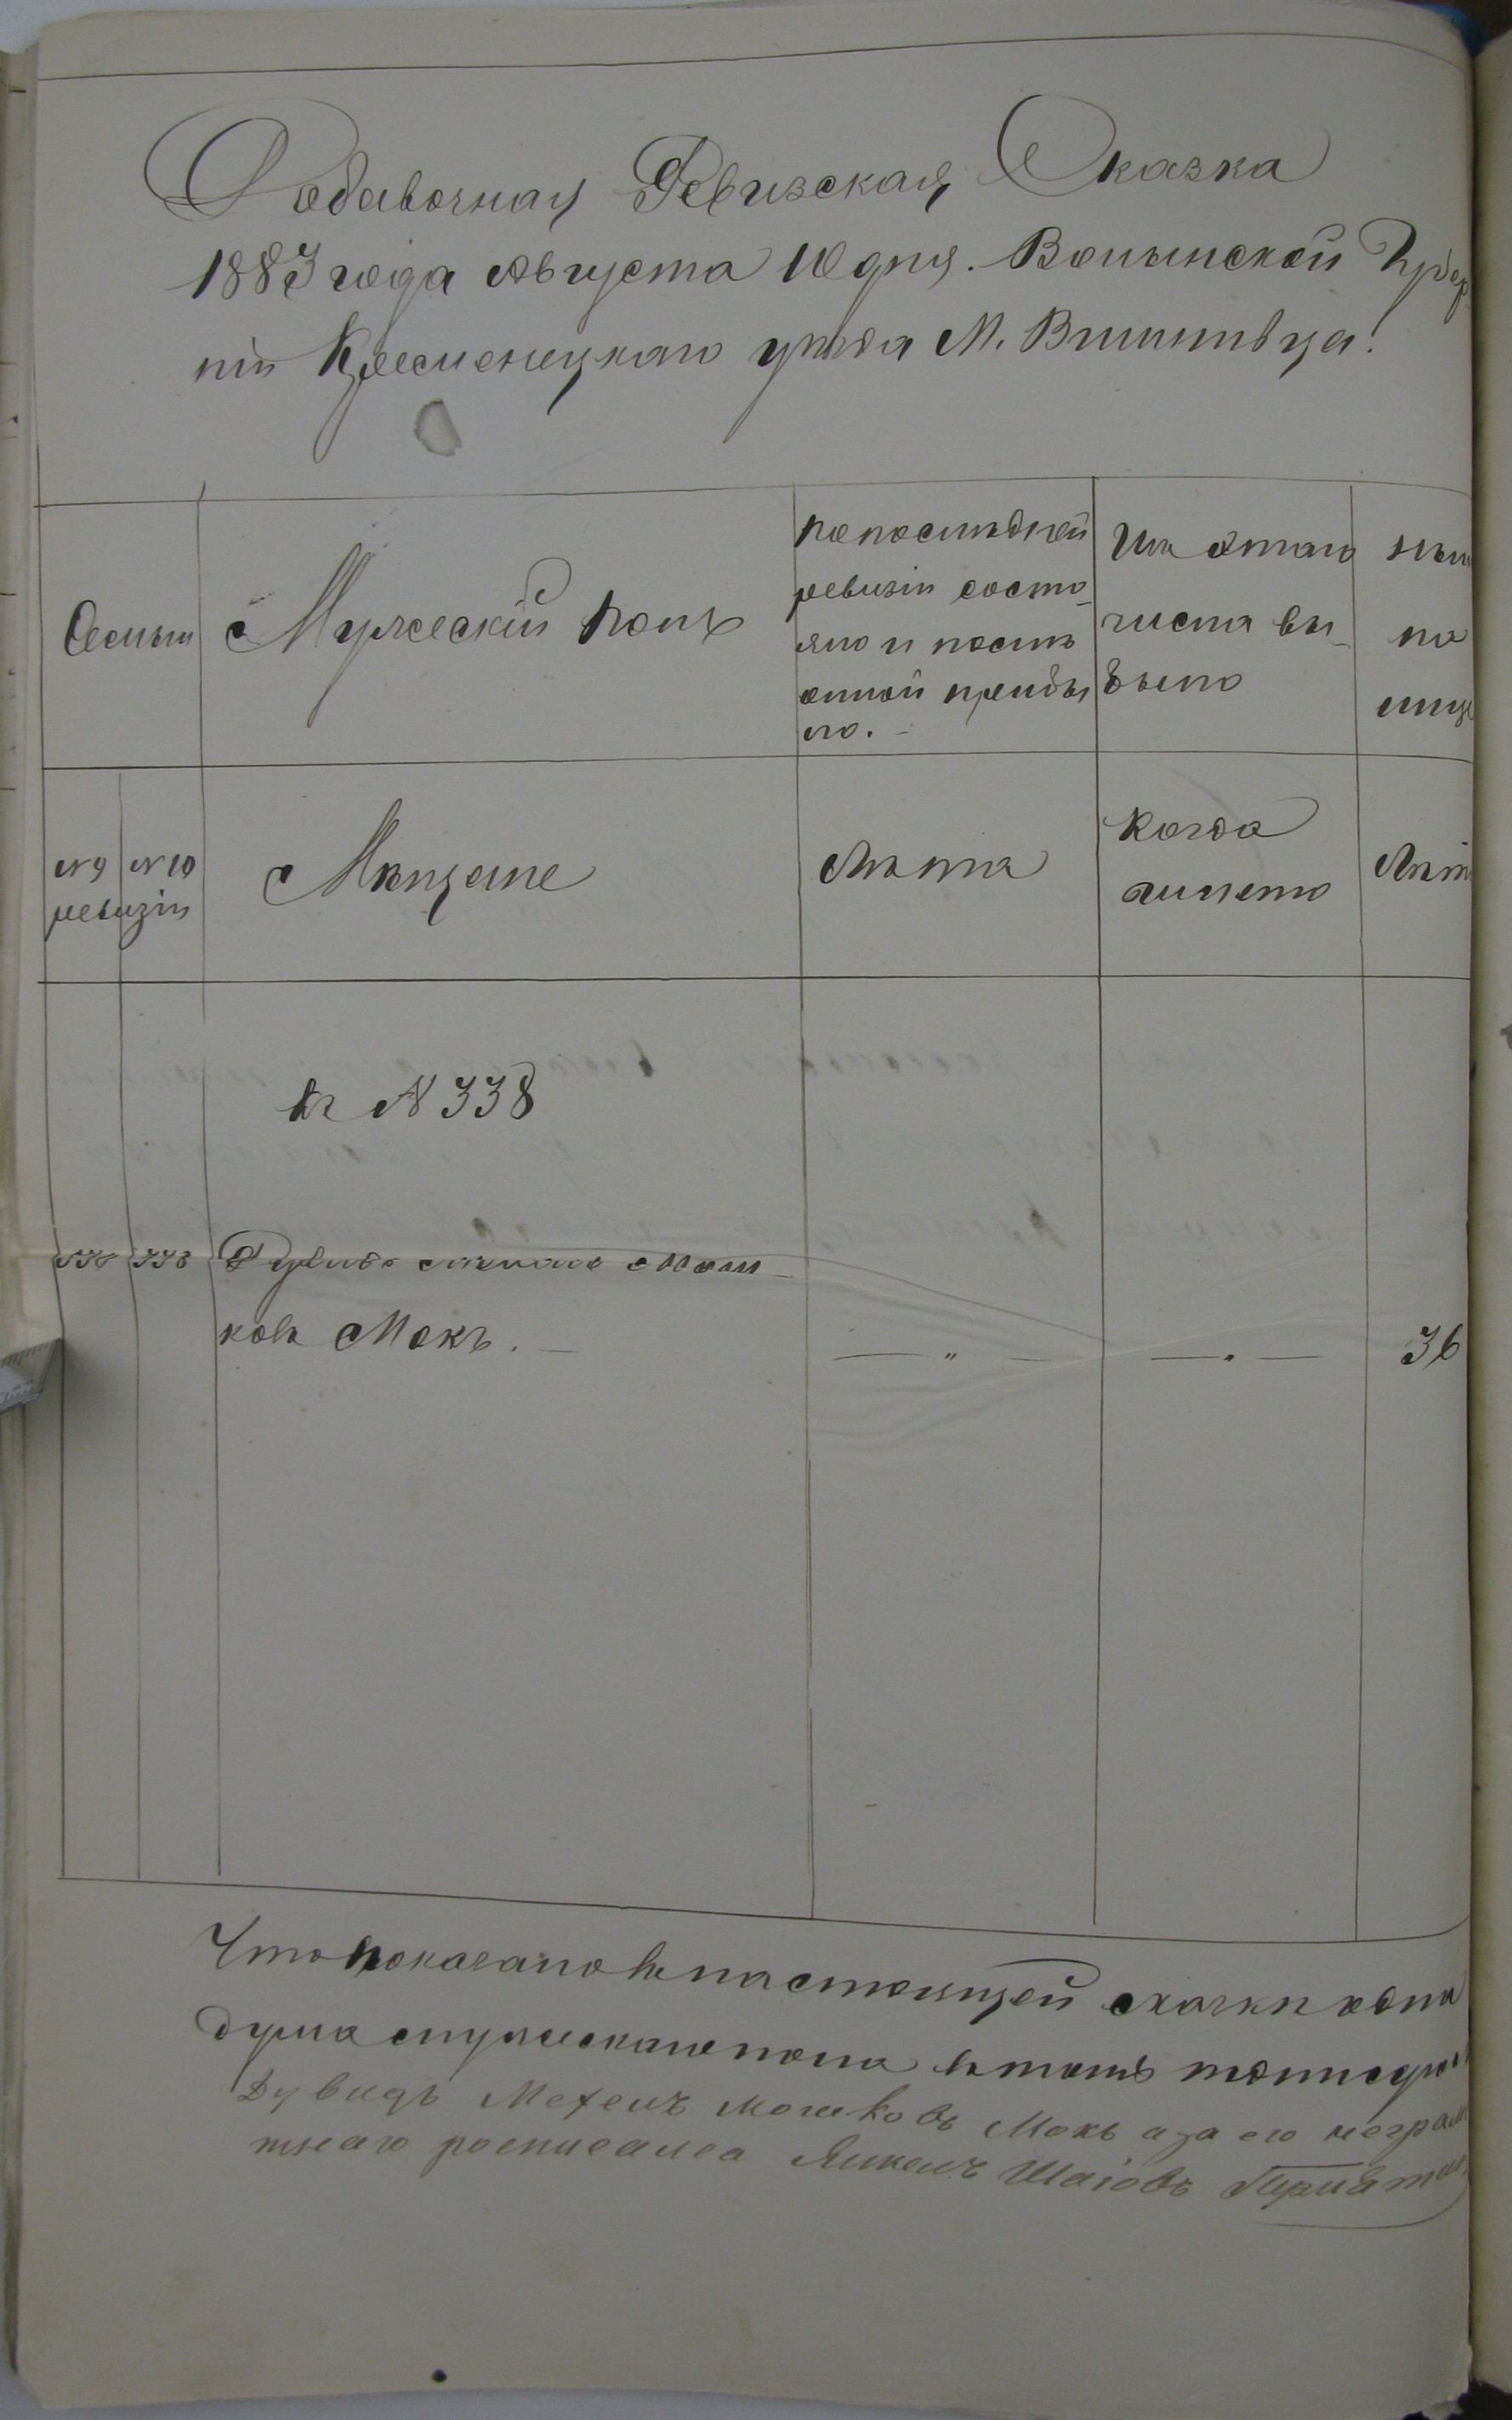 Добавочная Ревизская Сказка
1883 года Августа 10 дня. Волынской Губер
ніи Кременецкаго уѣзда М. Вишневца.
Семьи
Мужескій полъ
по последней
ревизіи состо-
яло и послѣ
оной прибы
ло.
Изъ этаго
числа вы-
было
нын
на
лице
№ 9 № 10
ревизіи
Мѣщане
Лѣта
Когда
именно
Лѣт
къ № 338
338
Дувидъ Мехель Мош-
ковъ Мокъ. —
— " — — " — 36
Что показано въ настоящей сказки одна
душа мужескаго пола въ томъ
Дувидъ Мехель Мошковъ Мокъ а за его неграм
тнаго росписался Янкель Шаіовъ